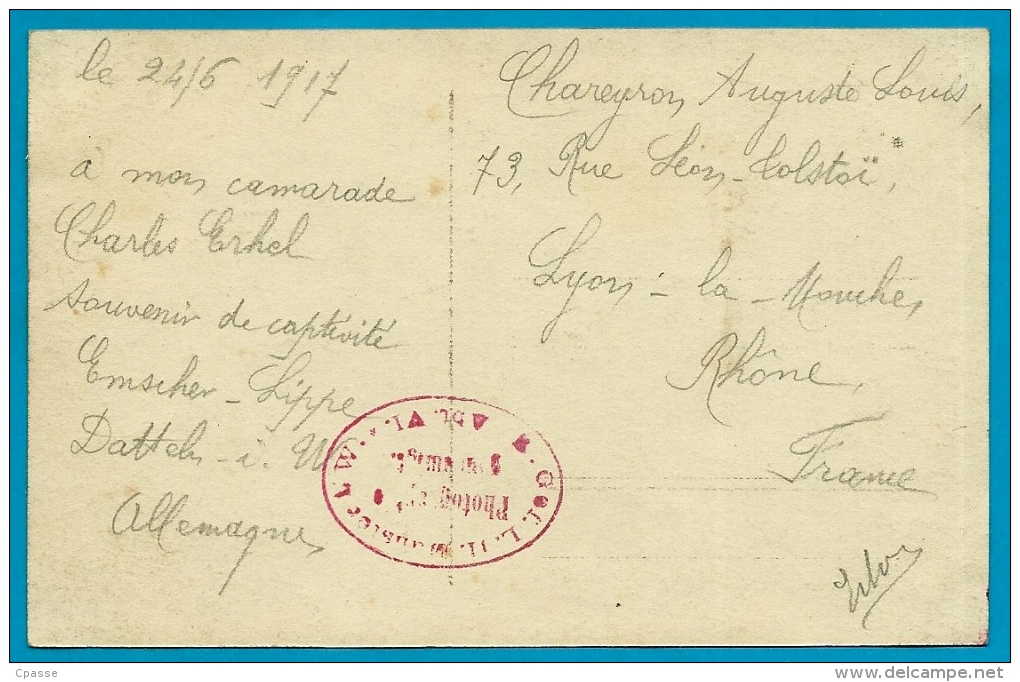 le 24/6 1917
à mon camarade
Charles Erhel
souvenir de captivité
Emscher-Lippe
Datteln-i. W
Allemagne
Chareyron, Auguste Louis,
73, Rue Léon-Tolstoï,
Lyon-la-Mouche,
Rhône,
France
K. Gef. L. II. Münster i. W. * Abt. VI.
Photogr.